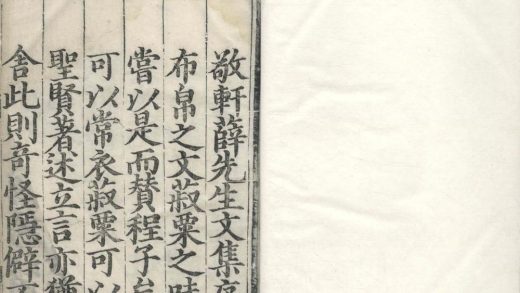 敬軒薛先生文集序
布帛之文菽粟之味
嘗以是而贊程子
可以常衣菽粟可以
聖賢著述立言亦猶
舍此則奇怪隱僻